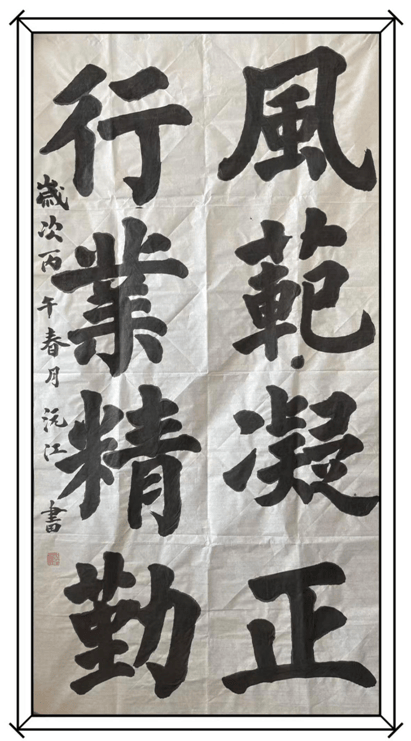 風範凝正
行業精勤
歲次丙午春月沅江書